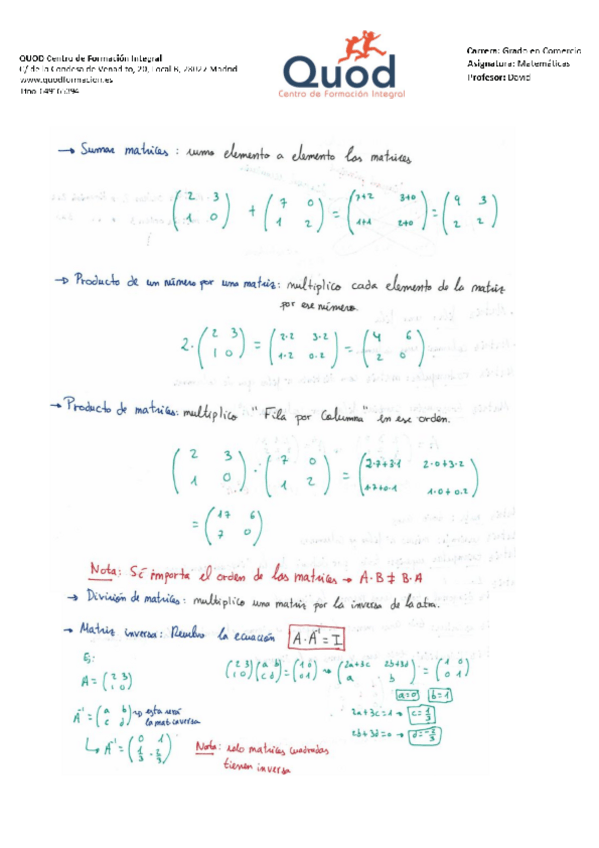 QUOD Centro de Formación Integral
C/ de la Condesa de Venadito, 20, Local B, 28027 Madrid
www.quodformacion.es
Quod
Centro de Formación Integral
Carrera: Grado en Comercio
Asignatura: Matemáticas
Profesor: David
→ Sumar matrices: sumo elemento a elemento las matrices
(2 3 / 1 0) + (7 0 / 1 2) = (7+2 3+0 / 1+1 2+0) = (9 3 / 2 2)
→ Producto de un número por una matriz: multiplico cada elemento de la matriz
por ese número.
2·(2 3 / 1 0) = (2·2 3·2 / 1·2 0·2) = (4 6 / 2 0)
→ Producto de matrices: multiplico "Fila por Columna" en ese orden.
(2 3 / 1 0)·(7 0 / 1 2) = (2·7+3·1 2·0+3·2 / 1·7+0·1 1·0+0·2)
= (17 6 / 7 0)
Nota: Sí importa el orden de las matrices → A·B ≠ B·A
→ División de matrices: multiplico una matriz por la inversa de la otra.
→ Matriz inversa: Resuelvo la ecuación A·A⁻¹ = I
Ej:
A = (2 3 / 1 0)
(2 3 / 1 0)(a b / c d) = (1 0 / 0 1) → (2a+3c 2b+3d / a b) = (1 0 / 0 1)
a=0 b=1
A⁻¹ = (a b / c d) → esta será
la mat. inversa
2a+3c=1 → c=1/3
2b+3d=0 → d=-2/3
↳ A⁻¹ = (0 1 / 1/3 -2/3)
Nota: solo matrices cuadradas
tienen inversa